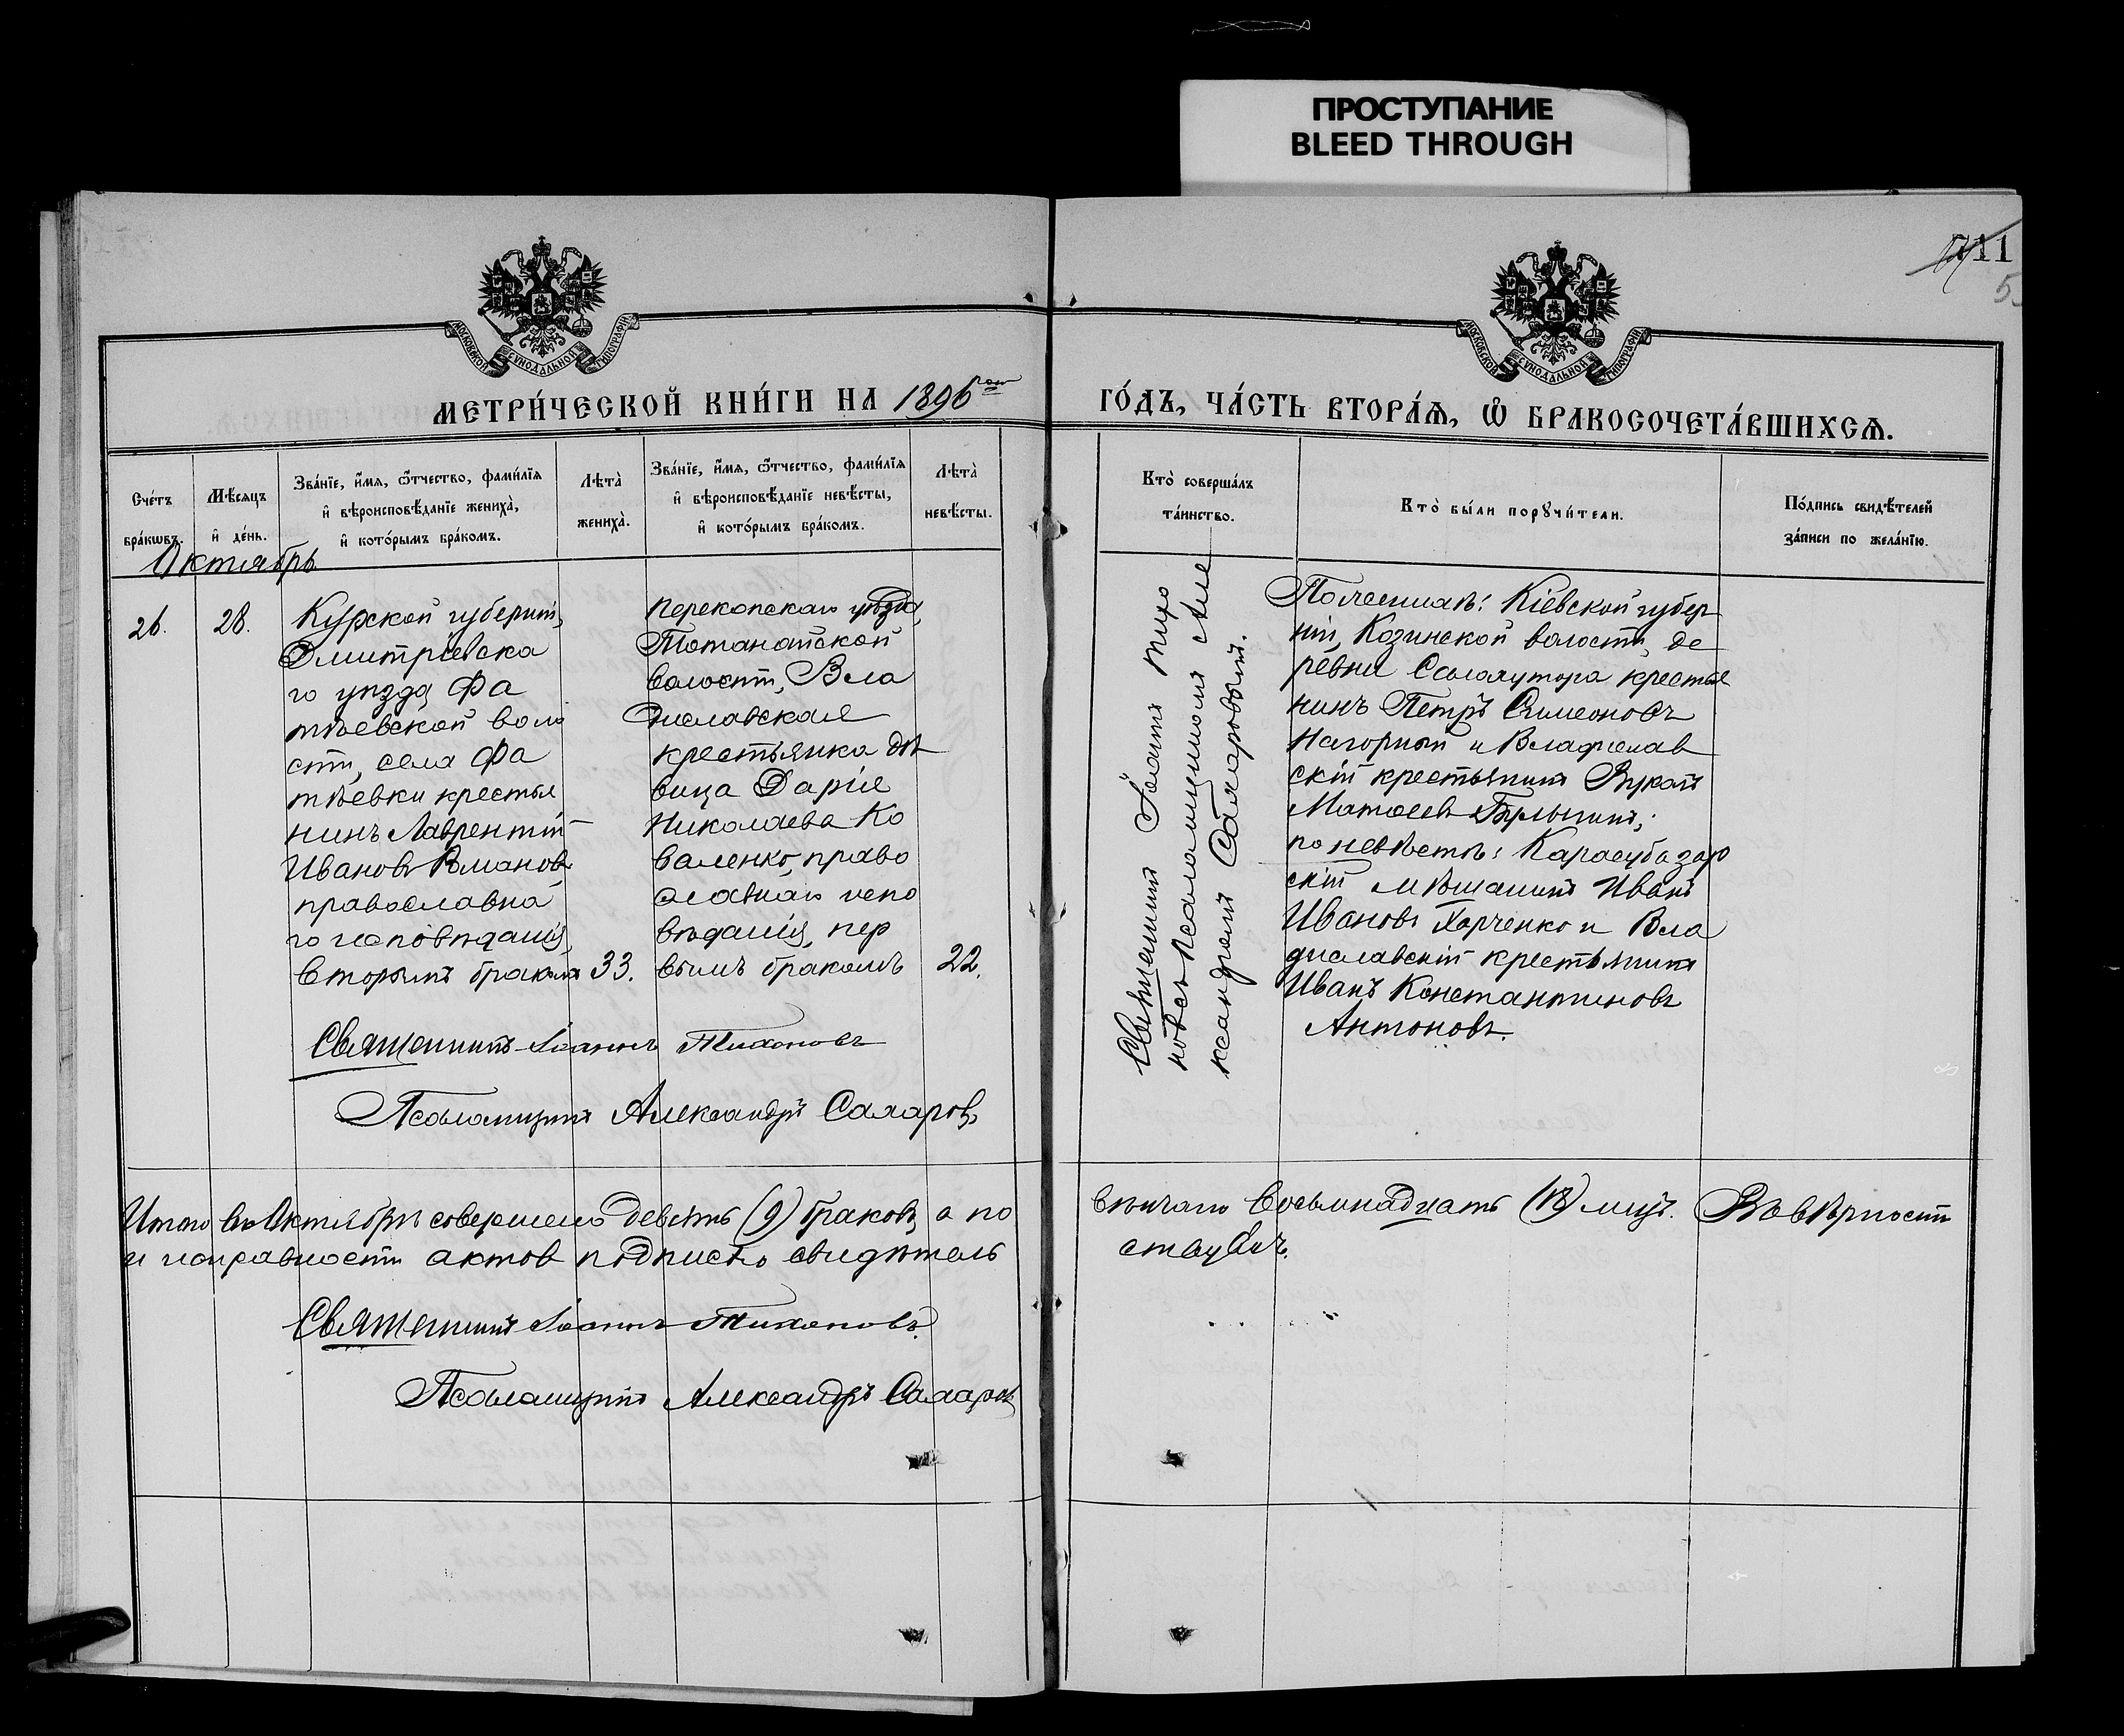 ПРОСТУПАНИЕ
BLEED THROUGH
711
5
МОСКОВСКОЙ СѴНОДАЛЬНОЙ ТИПОГРАФІИ
МОСКОВСКОЙ СѴНОДАЛЬНОЙ ТИПОГРАФІИ
МЕТРИ́ЧЕСКОЙ КНИ́ГИ НА 1896 го́дъ, ча́сть втора́ѧ, ѡ҆ бракосочета́вшихсѧ.
Сче́тъ бра́кѡвъ.
Мѣ́сѧцъ и҆ де́нь.
Зва́нїе, и҆́мѧ, ѻ҆́тчество, фами́лїѧ
и҆ вѣроисповѣ́данїе жениха̀,
и҆ кото́рымъ бра́комъ.
Лѣ́та жениха̀.
Зва́нїе, и҆́мѧ, ѻ҆́тчество, фами́лїѧ
и҆ вѣроисповѣ́данїе невѣ́сты,
и҆ кото́рымъ бра́комъ.
Лѣ́та невѣ́сты.
Кто̀ соверша́лъ
та́инство.
Кто̀ бы́ли порꙋчи́тели.
По́дпись свидѣ́телей
за́писи по жела́нїю.
Октябрь
26.
28.
Курской губерніи,
Дмитріевска
го уѣзда Фа
тѣевской воло
сти, села Фа
тѣевки крестья
нинъ Лаврентій
Ивановъ Романовъ
православна
го исповѣданія,
вторымъ бракомъ
33.
Перекопскаго уѣзда,
Тотанайской
волости, Вла
диславская
крестьянка дѣ
вица Дарія
Николаева Ко
валенко, право
славнаго испо
вѣданія, пер
вымъ бракомъ
22.
Священникъ Іоаннъ Тихо
новъ съ псаломщикомъ Але
ксандромъ Сахаровымъ.
По женихѣ: Кіевской губер
ніи, Козинской волости, де
ревни крестья
нинъ Петръ Симеоновъ
Нагорный и Владислав
скій крестьянинъ Лукамъ
Матѳеевъ
по невѣстѣ: Карасубазар
скій мѣщанинъ Иванъ
Ивановъ Харченко и Вла
диславскій крестьянинъ
Иванъ Константиновъ
Антоновъ.
Священникъ Іоаннъ Тихоновъ
Псаломщикъ Александръ Сахаровъ
Итого въ Октябрѣ совершено девять (9) браковъ, а по
вѣнчано восемнадцать (18) лицъ. Въ вѣрности
и исправности актовъ подписью свидѣтель
ствуемъ.
Священникъ Іоаннъ Тихоновъ.
Псаломщикъ Александръ Сахаровъ